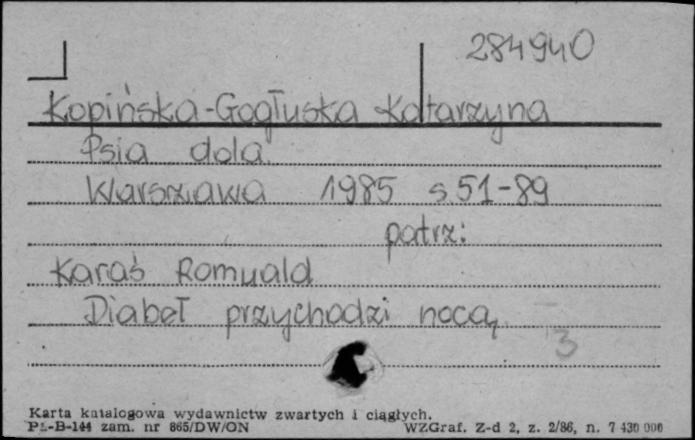 284940
Kopińska-Gogłuska Katarzyna
Psia dola
Warszawa 1985 s. 51-89
patrz:
Karaś Romuald
Diabeł przychodzi nocą
3
Karta katalogowa wydawnictw zwartych i ciągłych.
Pł.-B-144 zam. nr 865/DW/ON WZGraf. Z-d 2, z. 2/86, n. 7 430 000